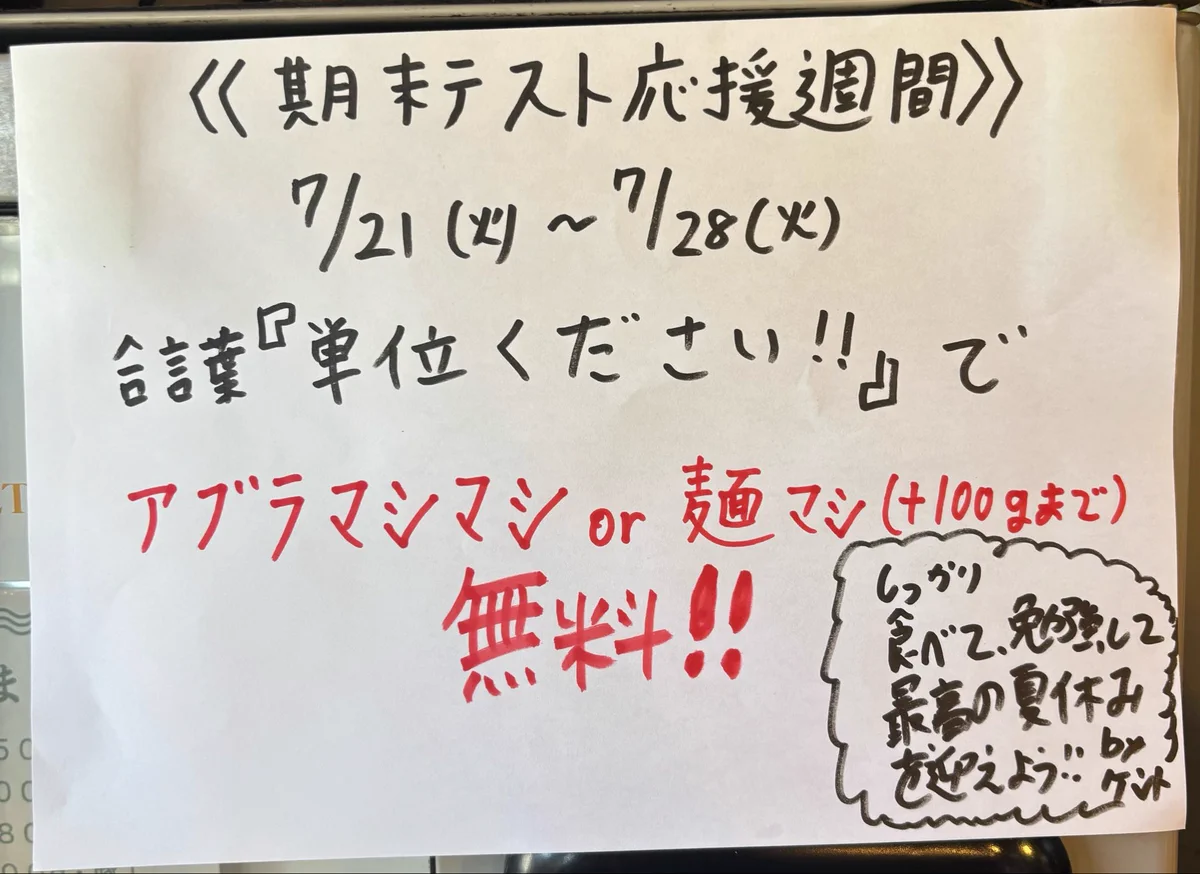 《期末テスト応援週間》
7/21(火)〜7/28(火)
合言葉『単位ください!!』で
アブラマシマシ or 麺マシ(+100gまで)
無料!!
しっかり
食べて、勉強して
最高の夏休み
を迎えよう‥
by
ケント